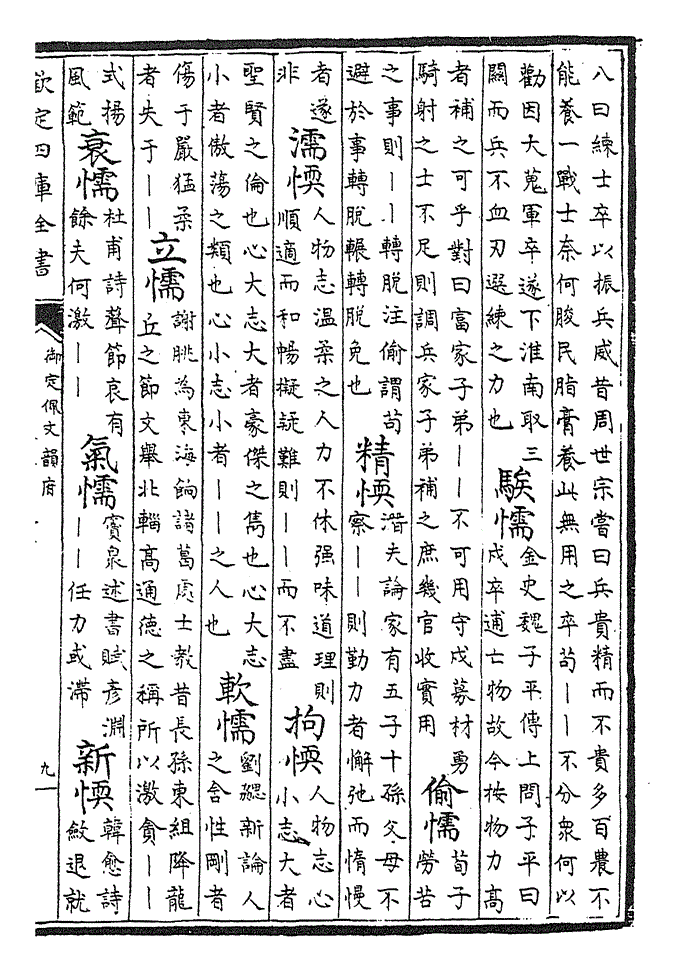 八曰練士卒以振兵威昔周世宗嘗曰兵貴精而不貴多百農不
能養一戰士奈何朘民脂膏養此無用之卒苟——不分衆何以
勸因大蒐軍卒遂下淮南取三
關而兵不血刃選練之力也
騃懦
金史魏子平傳上問子平曰
戍卒逋亡物故今按物力髙
者補之可乎對曰富家子弟——不可用守戍募材勇
騎射之士不足則調兵家子弟補之庶幾官收實用
偷懦
荀子
勞苦
之事則——轉脫注偷謂苟
避於事轉脫輾轉脫免也
精愞
潛夫論家有五子十孫父母不
察——則勤力者懈弛而惰慢
者遂
非
濡愞
人物志温柔之人力不休强味道理則
順適而和暢擬疑難則——而不盡
拘愞
人物志心
小志大者
聖賢之倫也心大志大者豪傑之雋也心大志
小者傲蕩之類也心小志小者——之人也
軟懦
劉勰新論人
之含性剛者
傷于嚴猛柔
者失于——
立懦
謝朓為東海餉諸葛處士教昔長孫東組降龍
丘之節文舉北輜髙通德之稱所以激貪——
式揚
風範
衰懦
杜甫詩聲節哀有
餘夫何激——
氣懦
竇泉述書賦彦淵
——任力或滯
新愞
韓愈詩
斂退就
欽定四庫全書
御定佩文韻府
九